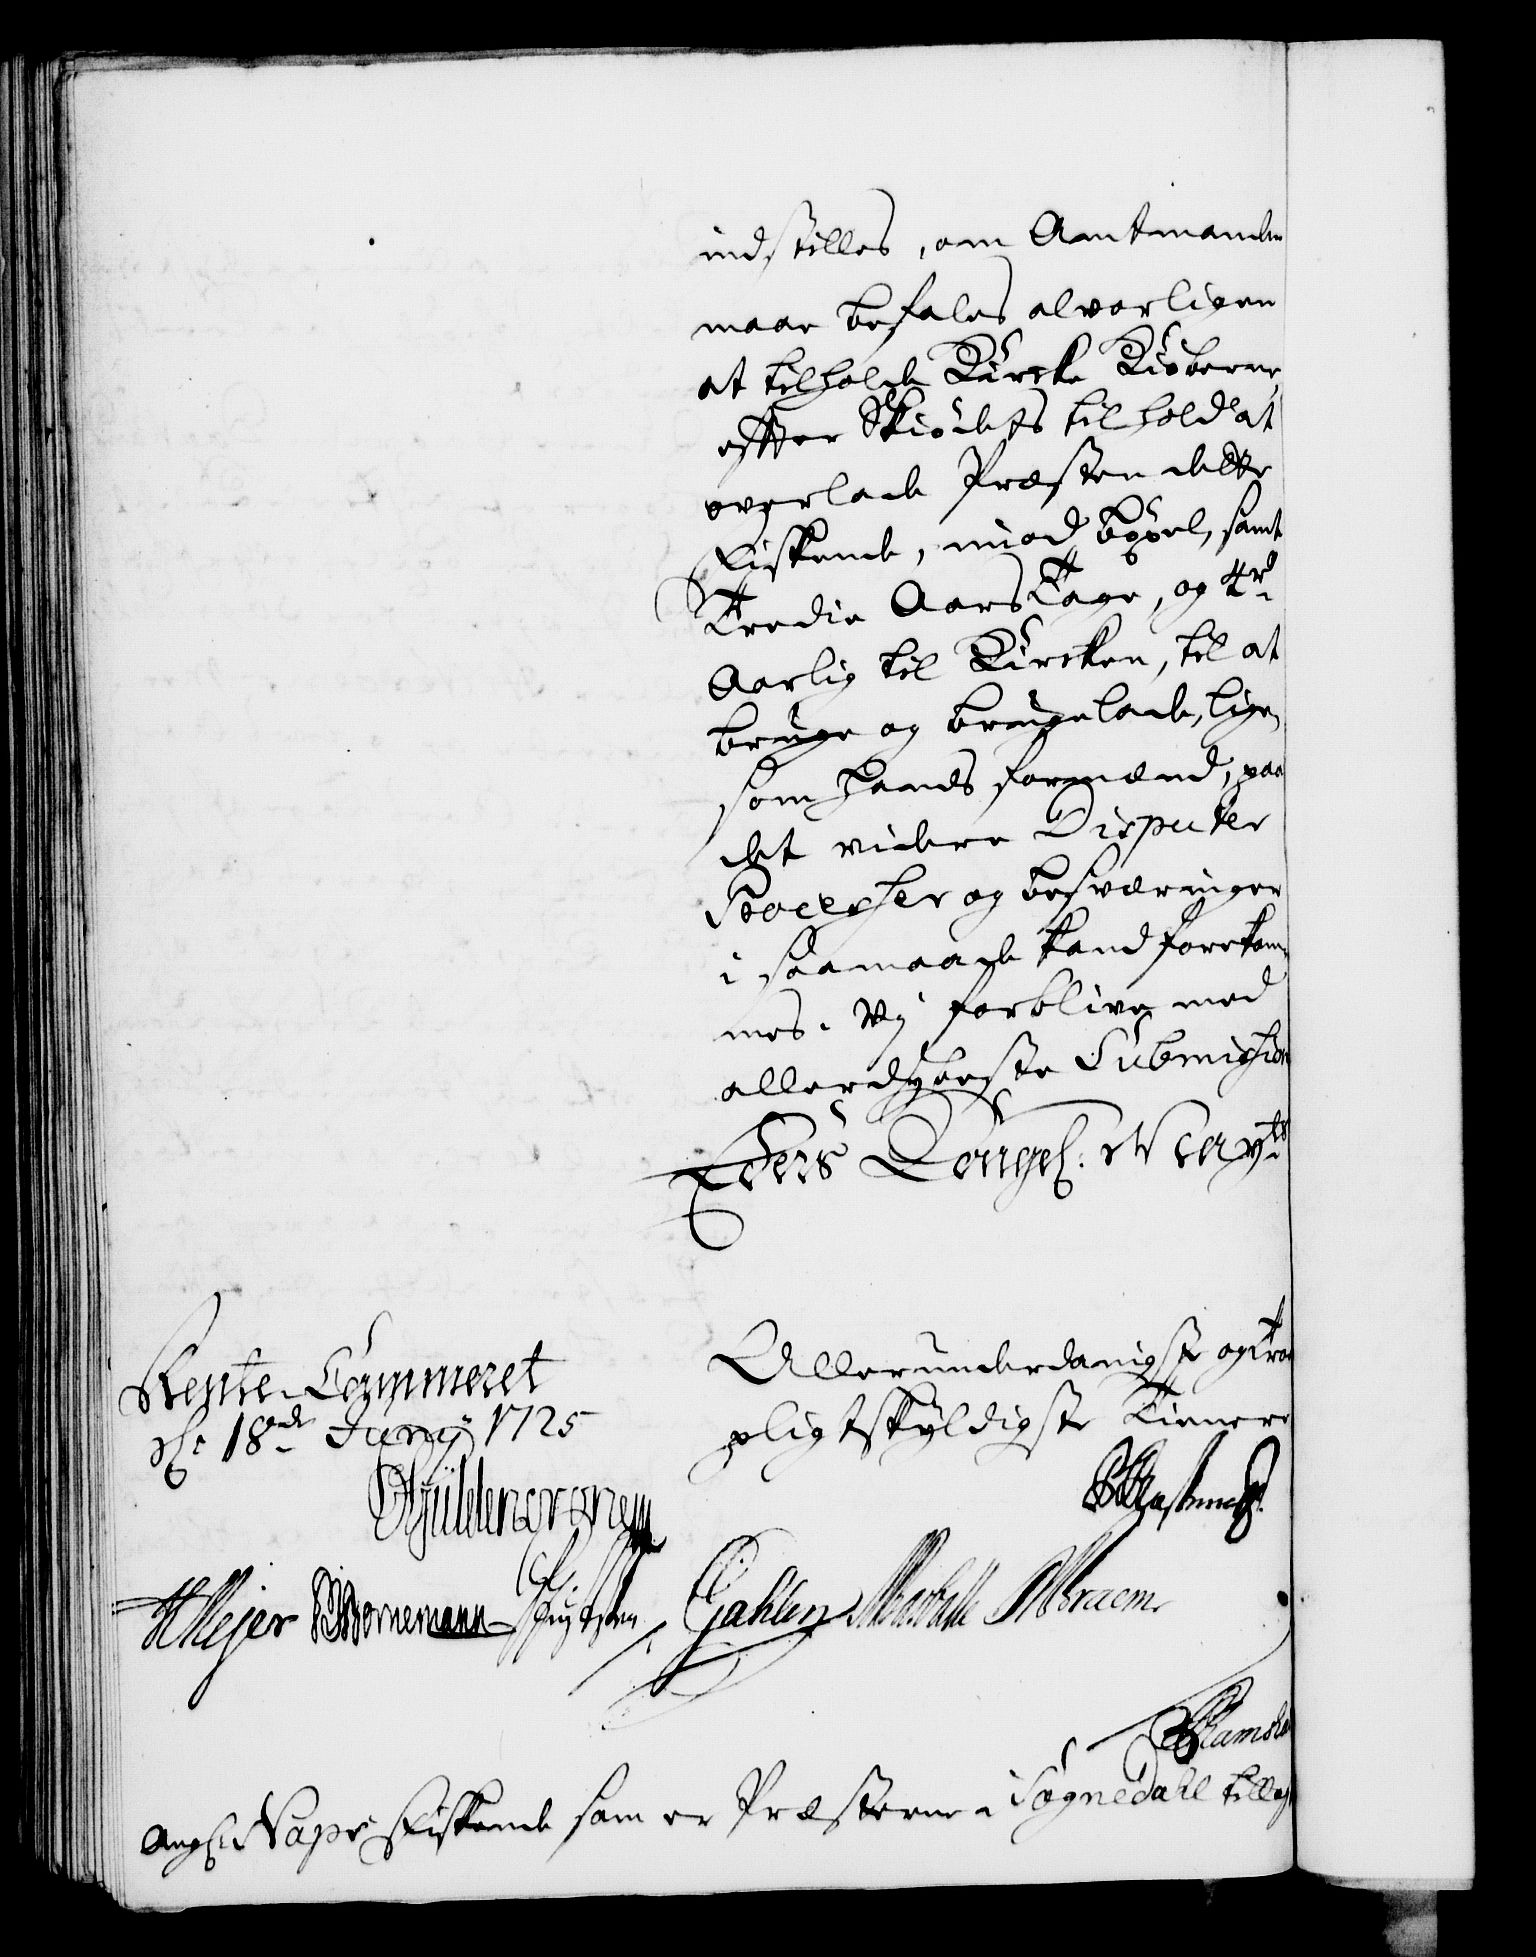 indstilles, om Amtmanden
maae befales alvorligen
at tilholde Kircke Kiøberne,
effter Skiødets tilhold at
overlade Præsten dette
Fiskende, imod böxel, samt
Tredie Aars Tage, og 4 rd
Aarlig til Kircken, til at
bruge og brugelade, lige
som hands formænd, paa
det videre Disputer
Processer og besværinger
i saamaade kand forekom-
mes. Vj forblive med
allerdybeste Submission
Eders Kongel: May.ts
Allerunderdanigste og troe
pligtskyldigste Tienere
Rente-Cammeret
d: 18de Junij 1725
Gÿldencrone
HMejer Bornemann Gahlen Braem
Ramshar
Ang: Naps Fiskende som er Præsterne i Sognedahl tillagt